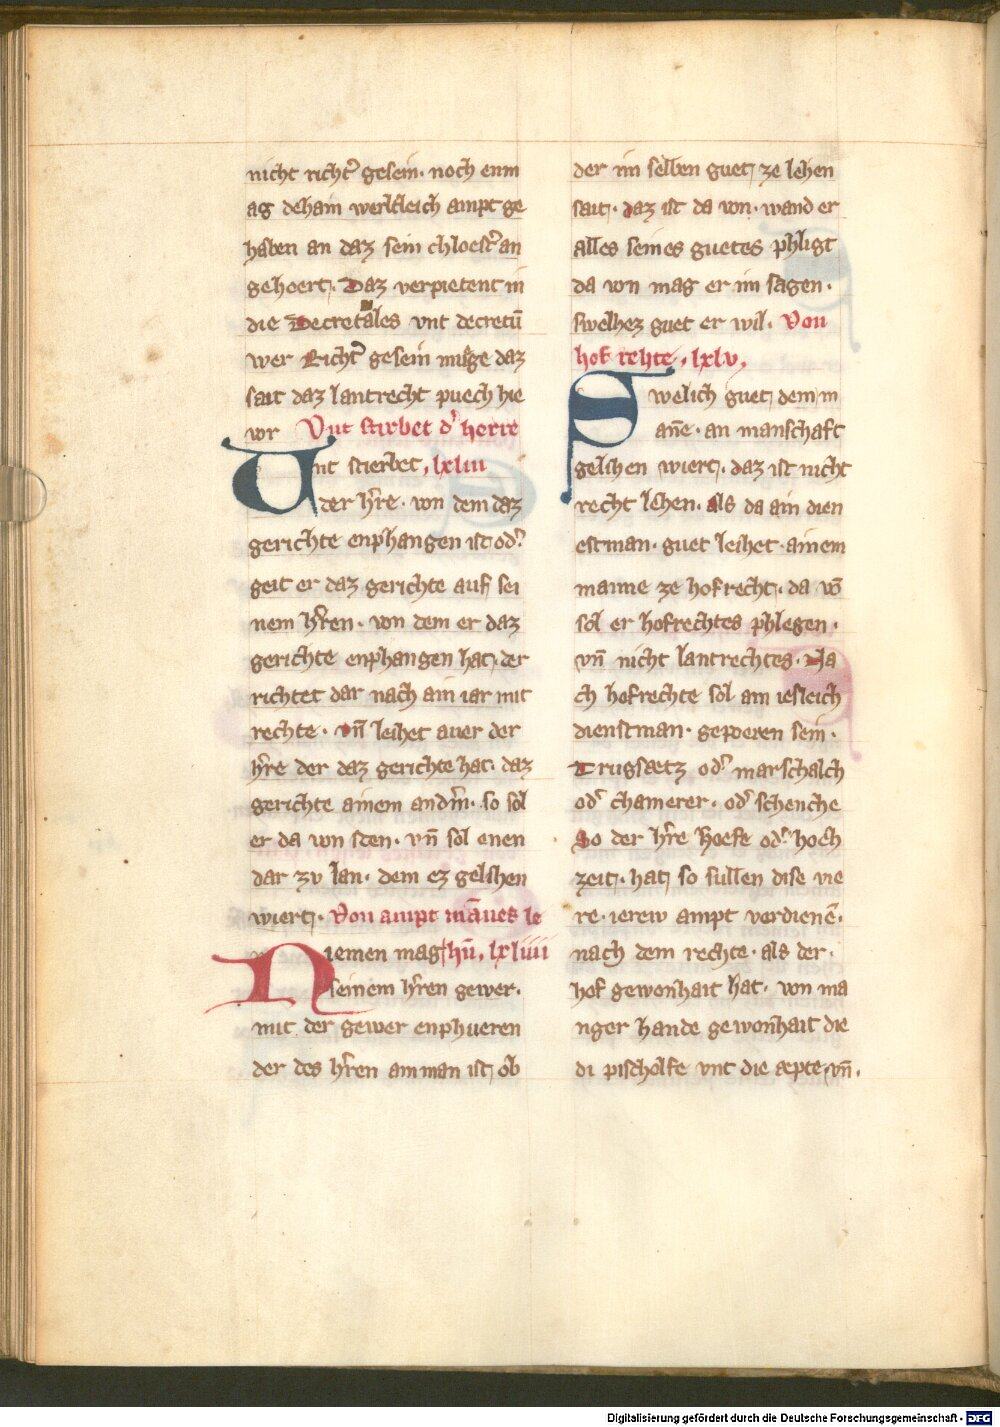 nicht richt͛ gesein · noch enm
ag dehain werltleich ampt ge
haben an daz sein chloest͛ an
gehoert · Daz verpietent in
die Decretales vnt decretū
wer Richt͛ gesein muge daz
sait daz lantrecht puech hie
vor Vnt stirbet d͛ herre
Vnt stierbet · lxliii
der h͛re · von dem daz
gerichte enphangen ist od͛
geit er daz gerichte auf sei
nem h͛ren · von dem er daz
gerichte enphangen hat · der
richtet dar nach ain iar mit
rechte · vn̄ leihet auer der
h͛re der daz gerichte hat · daz
gerichte ainem and͛m · so sol
er da von sten · vn̄ sol enen
dar zv lan · dem ez gelihen
wiert · Von ampt mānes le
Niemen mag hn̄ · lxliiii
seinem h͛ren gewer ·
mit der gewer enphueren
der des h͛ren amman ist ob
der im selben guet ze lehen
sait · daz ist da von · wand er
alles seines guetes phligt
da von mag er im sagen ·
swelhez guet er wil · Von
hof rehte · lxlv ·
Swelich guet dem m
an̄e · an manschaft
gelihen wiert · daz ist nicht
recht lehen · als da ain dien
estman · guet leihet ainem
manne ze hofrecht · da vō
sol er hofrechtes phlegen ·
vn̄ nicht lantrechtes · Na
ch hofrechte sol ain iesleich
dienstman · gepoeren sein ·
Trugsaetz od͛ marschalch
od͛ chamerer · od͛ schenche
So der h͛re hoefe od͛ hoch
zeit · hat so sullen dise vie
re · ierew ampt verdienē ·
nach dem rechte · als der ·
hof gewonhait hat · von ma
nger hande gewonhait die
di pischolfe vnt die aepte vn̄ ·
Digitalisierung gefördert durch die Deutsche Forschungsgemeinschaft - DFG